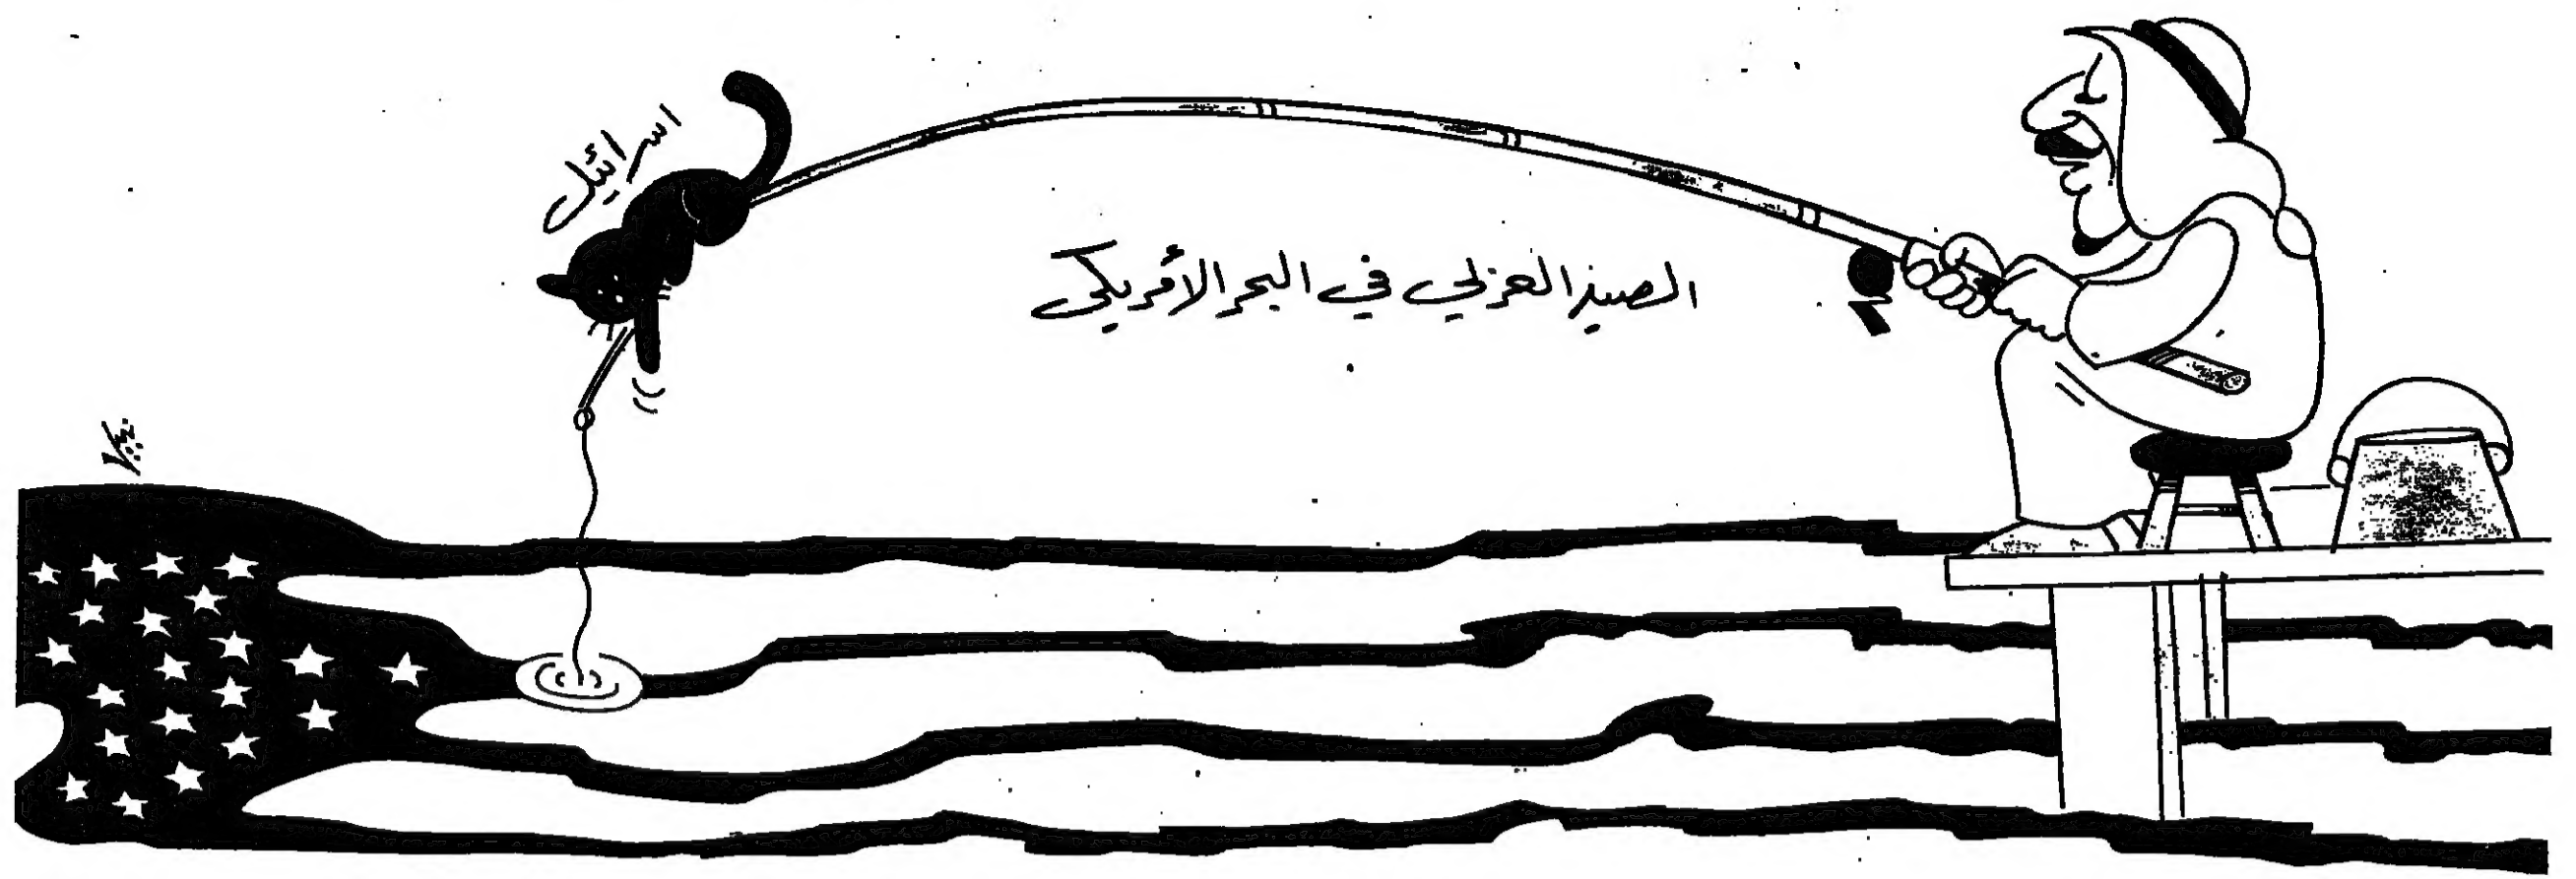 اسرائيل
الصيد العربي في البحر الأمريكي